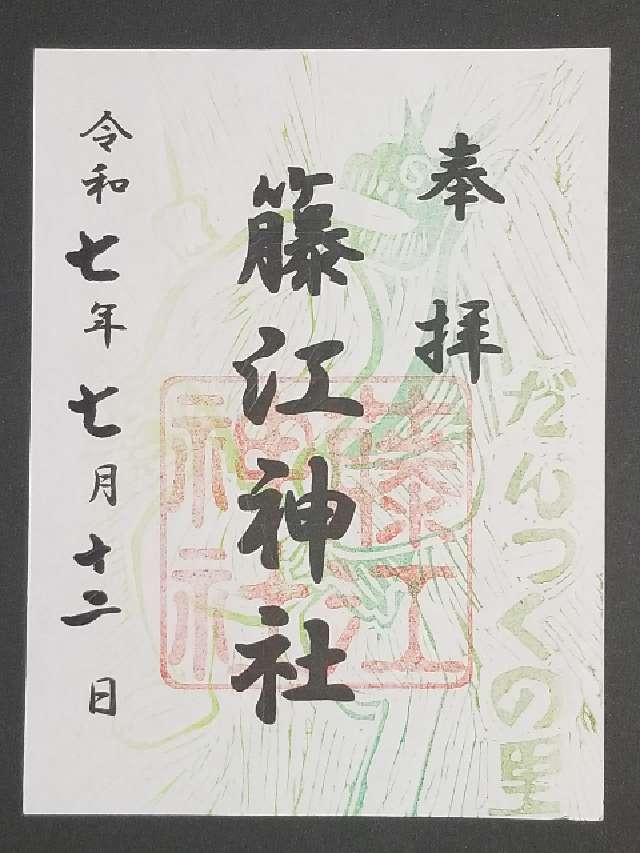 だんつくの里
奉拝
籐江神社
藤江
神社
令和七年七月十二日